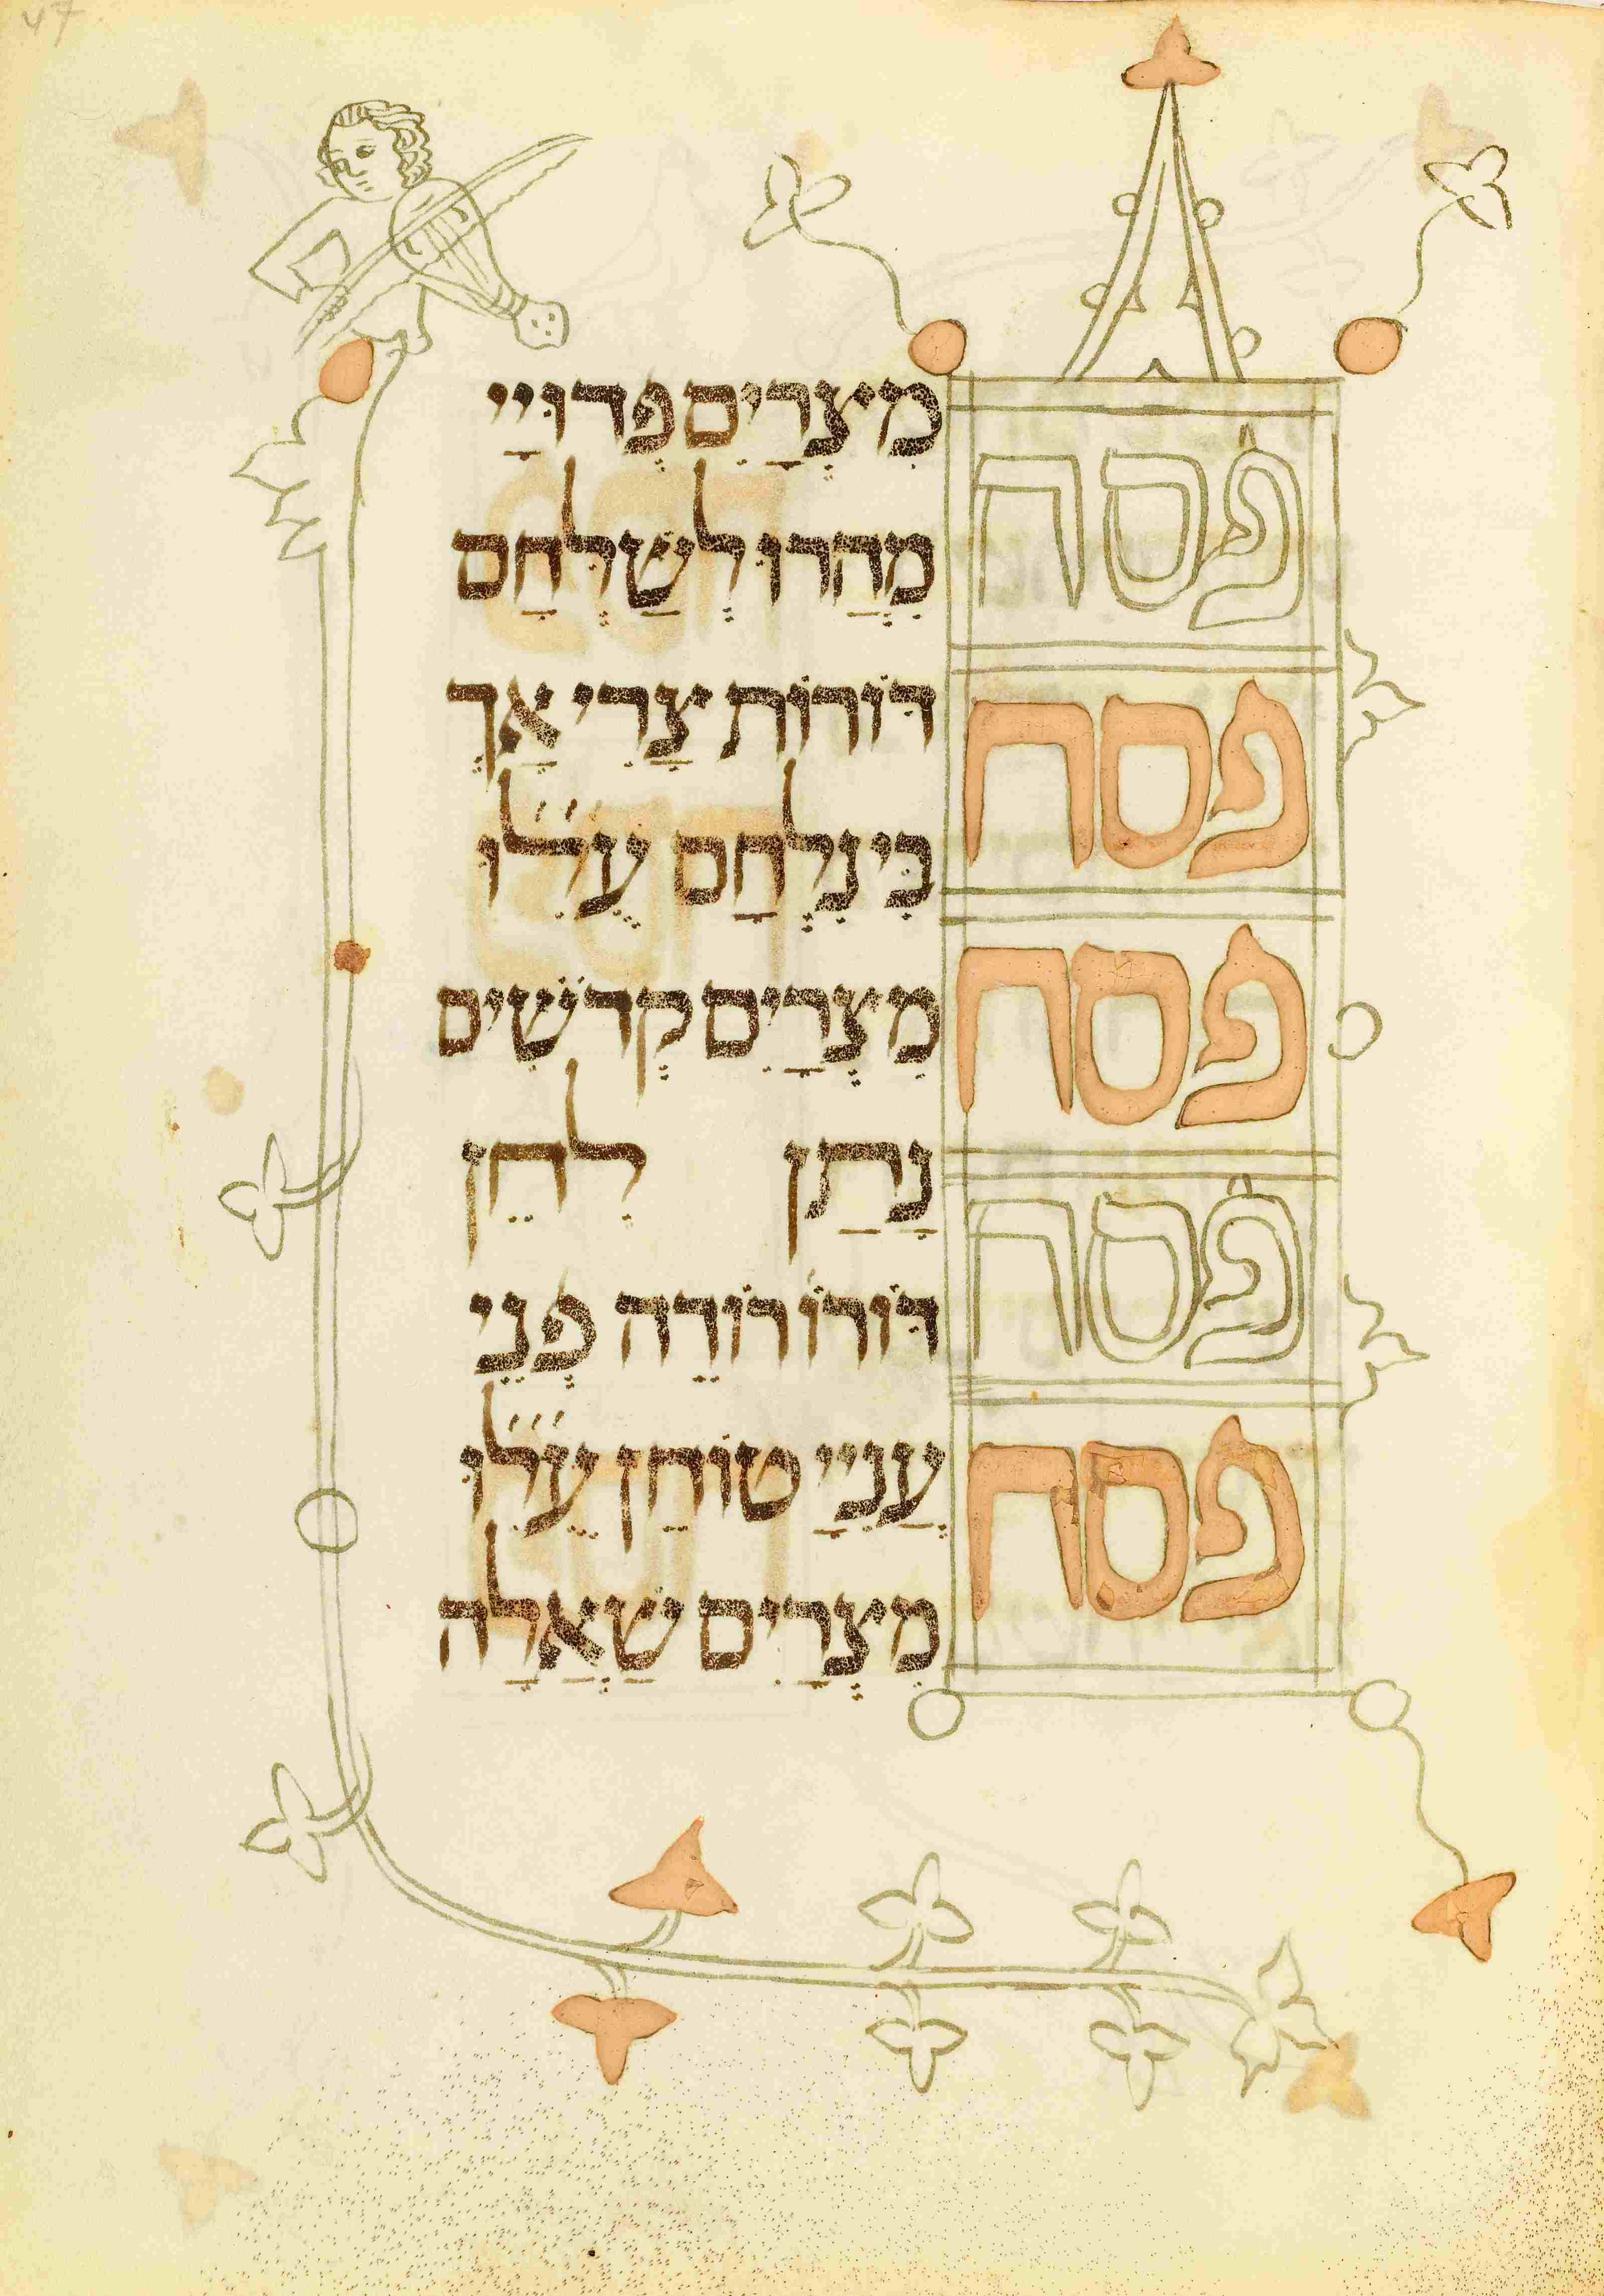 47
פסח מִצְרַיִם פְּדוּיַי
מִהֲרוּ לְשַׁלְּחָם
פסח דּוֹרוֹת צָרִי אַךְ
כִּי נִלְחַם
פסח מִצְרַיִם קְדֹשִׁים
נָתַן לְחֵן
פסח דּוֹרוֹ׳ רוֹדֵה פְּנֵי
עֲנִיַּי טוֹחֵן
פסח מִצְרַיִם שְׁאֵלָה